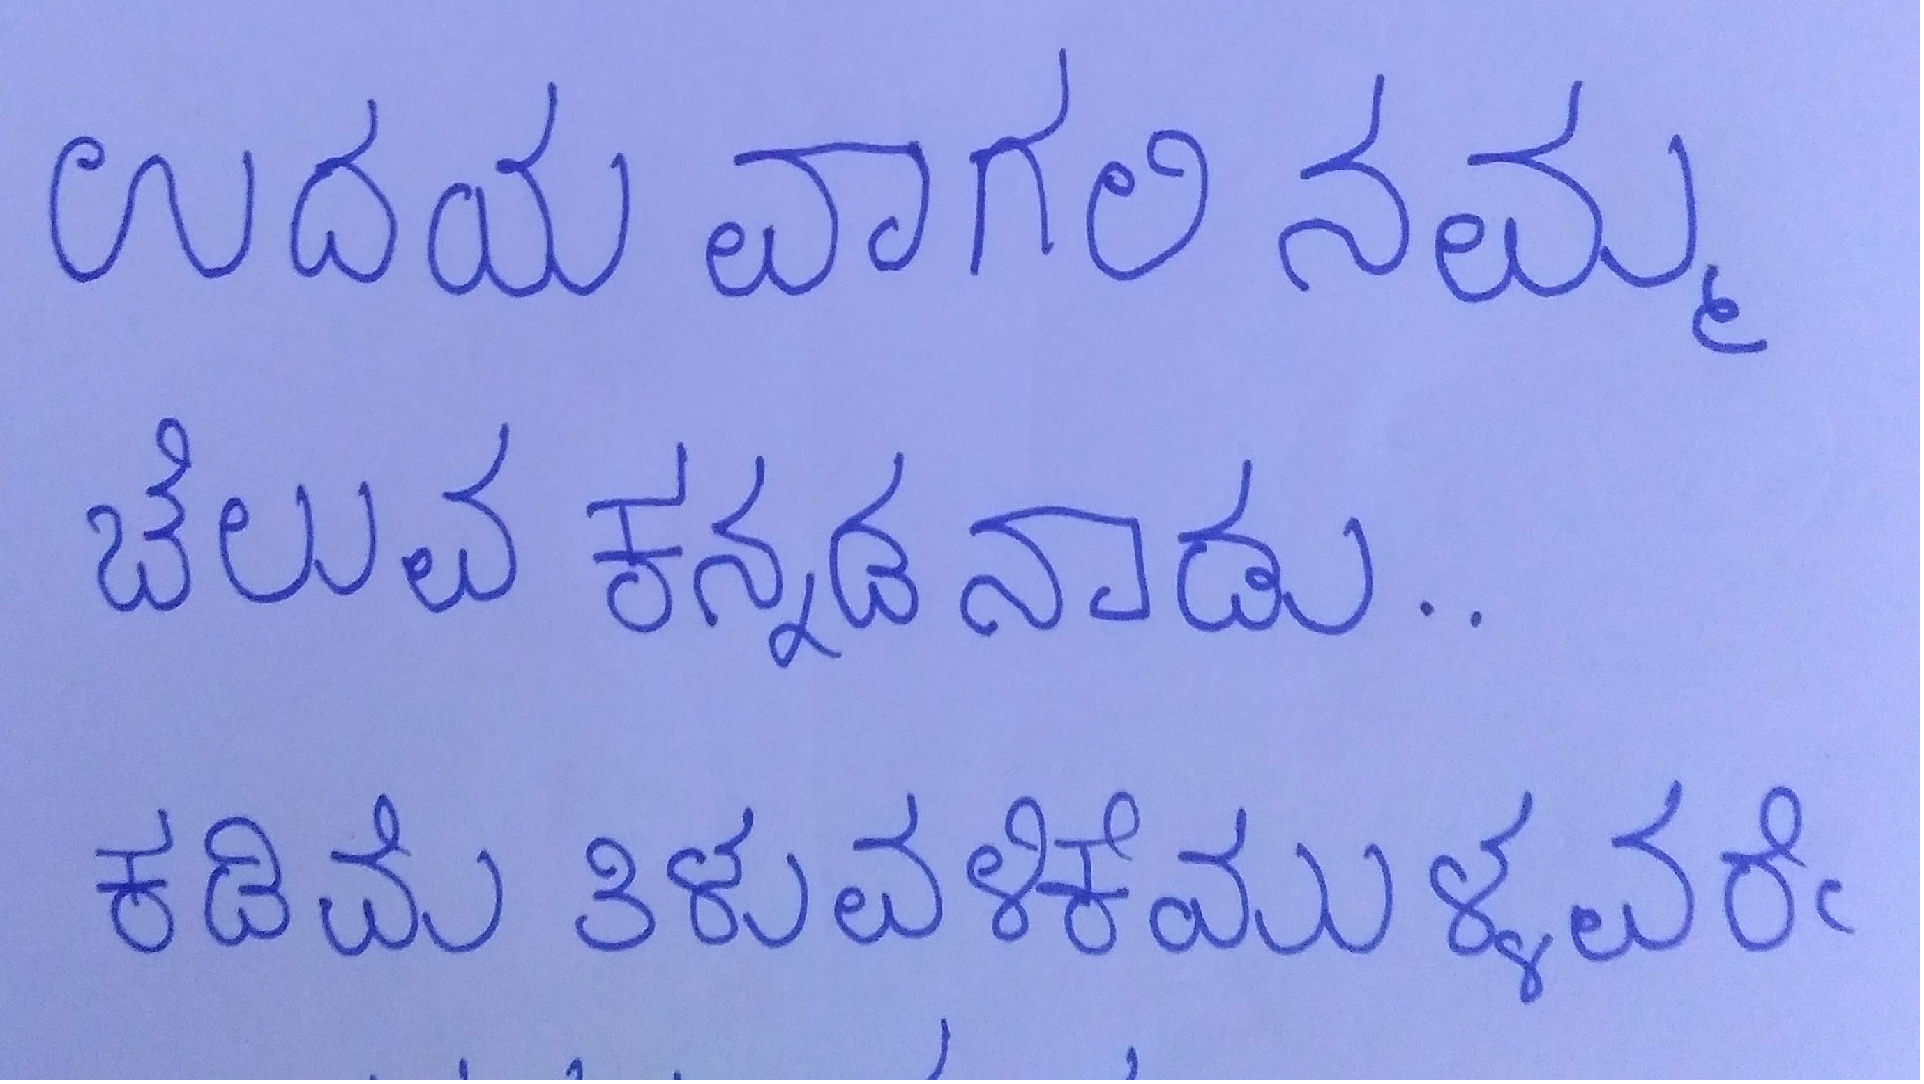 ಉದಯ ವಾಗಲಿ ನಮ್ಮ
ಚೆಲುವ ಕನ್ನಡ ನಾಡು..
ಕಡಿಮೆ ತಿಳುವಳಿಕೆಯುಳ್ಳವರೇ